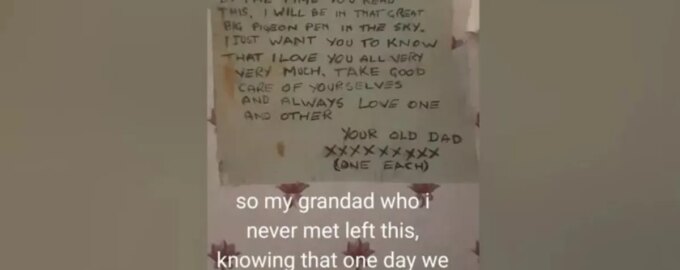 BY THE TIME YOU READ
THIS, I WILL BE IN THAT GREAT
BIG PIGEON PEN IN THE SKY.
I JUST WANT YOU TO KNOW
THAT I LOVE YOU ALL VERY
VERY MUCH. TAKE GOOD
CARE OF YOURSELVES
AND ALWAYS LOVE ONE
AND OTHER
YOUR OLD DAD
XXXXXXXXX
(ONE EACH)
so my grandad who i
never met left this,
knowing that one day we